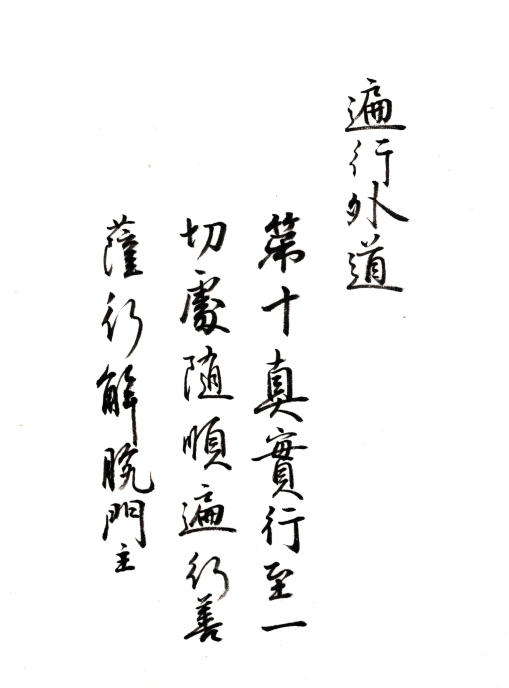 遍行外道
第十真實行至一
切處随順遍行善
薩行解脫門主